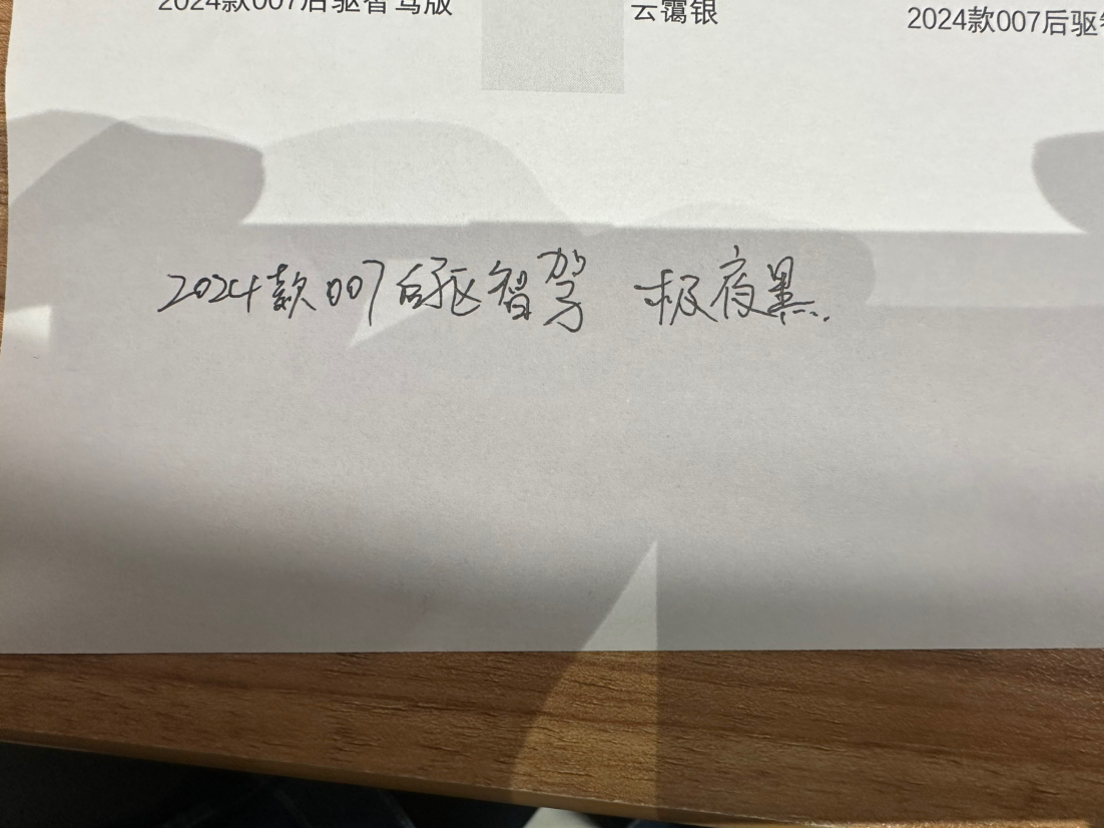 2024款007后驱智驾版 云霭银 2024款007后驱
2024款007后驱智驾 极夜黑.